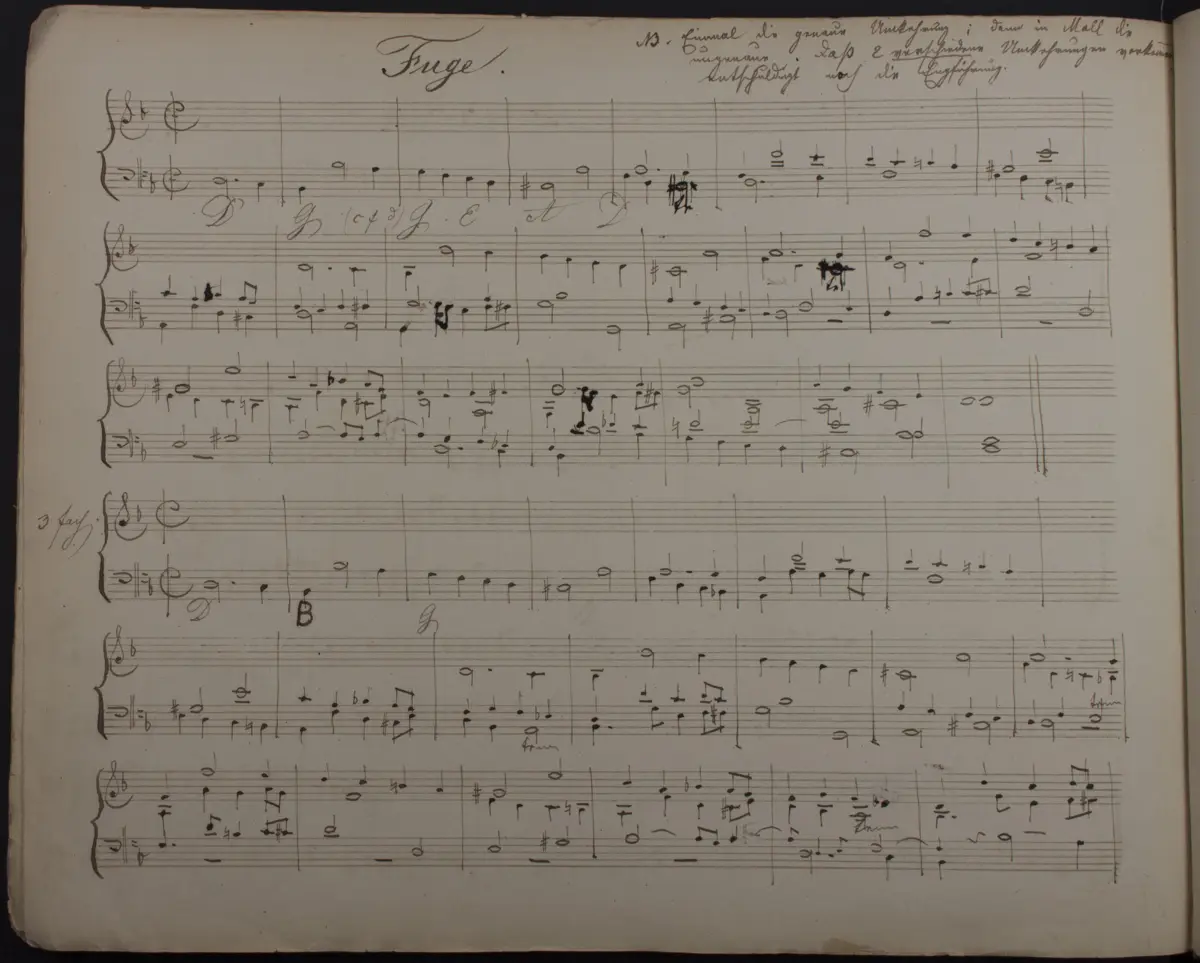 Fuge.
NB. Einmal die genaue Umkehrung; dann in Moll die
ungenaue. Daß 2 verschiedene Umkehrungen vorkommen
entschuldigt noch die Engführung.
D G (c f d) G E A D
3 fach.
D B G